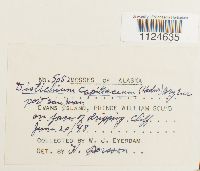 1124635
MOSSES OF ALASKA
Distichium capillaceum (Hedw) Bry. Eur
Port San Juan
EVANS ISLAND, PRINCE WILLIAM SOUND
on face of dripping cliff
June 20/48
COLLECTED BY W. J. EYERDAM
DET. BY H. Persson